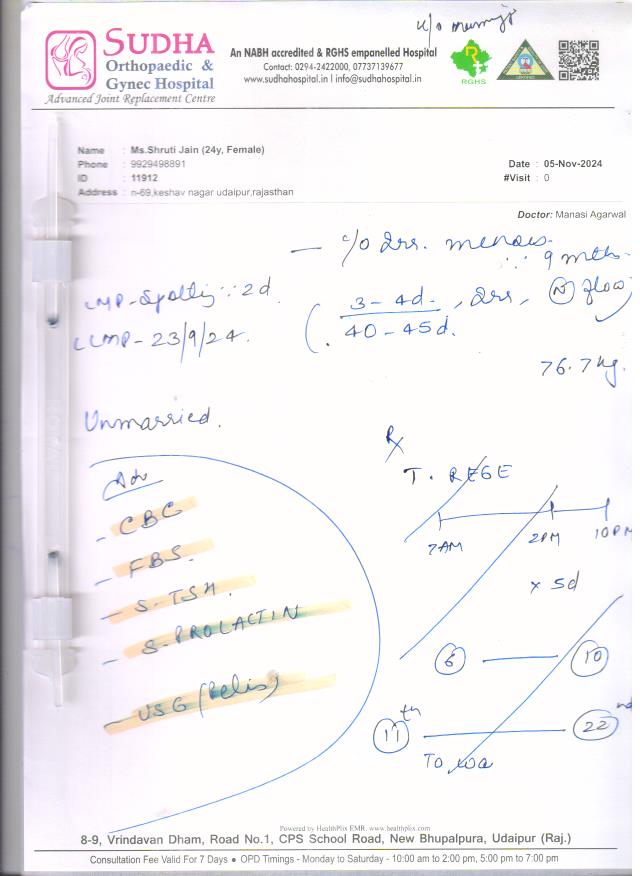 SUDHA
Orthopaedic &
Gynec Hospital
Advanced Joint Replacement Centre
An NABH accredited & RGHS empanelled Hospital
Contact: 0294-2422000, 07737139677
www.sudhahospital.in | info@sudhahospital.in
RGHS
Name : Ms.Shruti Jain (24y, Female)
Phone : 9929498891
ID : 11912
Address : n-69,keshav nagar udaipur,rajasthan
Date : 05-Nov-2024
#Visit : 0
Doctor: Manasi Agarwal
— c/o Irr. menses
∵ 9 mths
LMP - Spotting ∵ 2d
LLMP - 23/9/24.
3 - 4d , Irr, (N) flow
40 - 45d.
76.7 kg.
Unmarried.
Adv
- CBC
- FBS.
- S. TSH.
- S. PROLACTIN
- USG (Pelvis)
Rx
T. REGE
7AM 2PM 10PM
x 5d
6 — 10
11th — 22nd
Powered by HealthPlix EMR. www.healthplix.com
8-9, Vrindavan Dham, Road No.1, CPS School Road, New Bhupalpura, Udaipur (Raj.)
Consultation Fee Valid For 7 Days ● OPD Timings - Monday to Saturday - 10:00 am to 2:00 pm, 5:00 pm to 7:00 pm